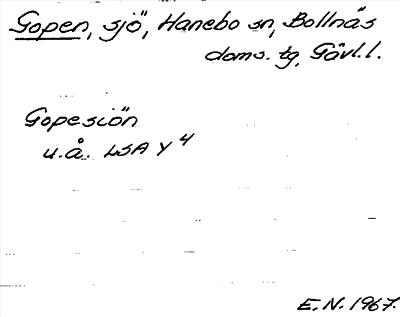 Gopen, sjö, Hanebo sn, Bollnäs
doms. tg, Gävl.l.
Gopesiön
u.å. LSA Y 4
E.N. 1967.